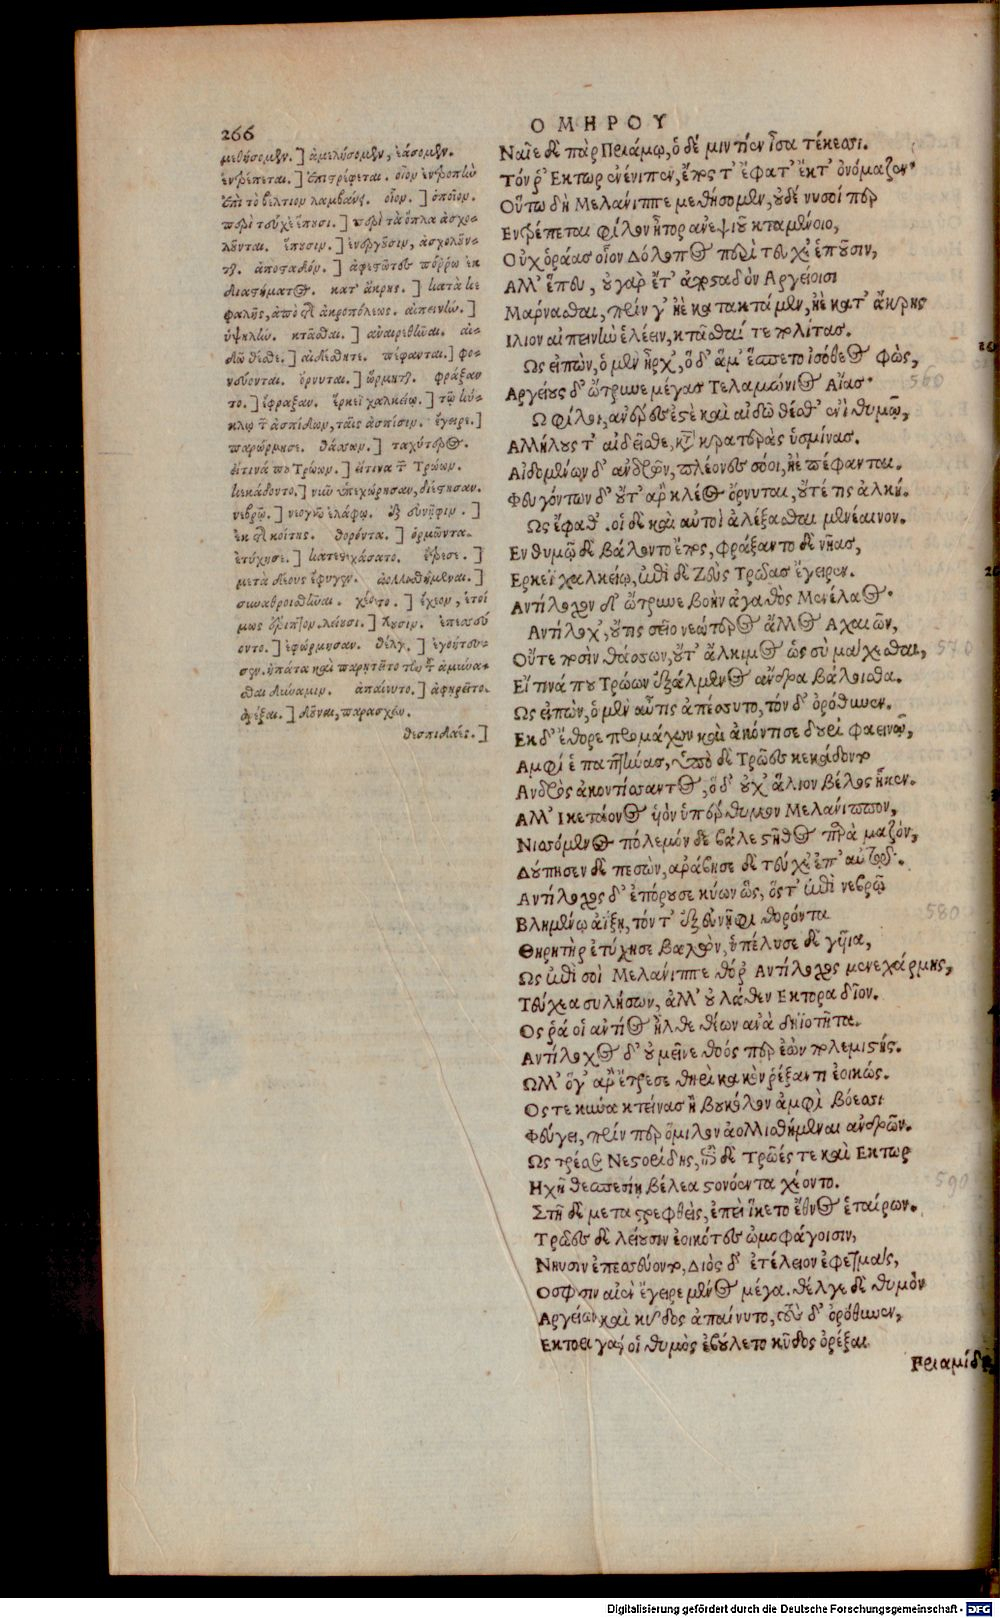 266
ΟΜΗΡΟΥ
μεθήσομεν.] ἀμελήσομεν, ἐάσομεν.
ἐντρέπεται.] ἐπιστρέφεται. οἷον ἐντροπὴν
ἐπὶ τὸ βέλτιον λαμβάνει. οἷον.] ὁποῖον.
περὶ τεύχε' ἕπουσι.] περὶ τὰ ὅπλα ἀσχο-
λοῦνται. ἕπουσιν.] ἐνεργοῦσιν, ἀσχολοῦν-
ται. ἀποσταδόν.] ἀφεστῶτες πόρρω ἐκ
διαστήματος. κατ' ἄκρης.] κατὰ κε
φαλῆς, ἀπὸ τῆς ἀκροπόλεως. αἰπεινὴν.]
ὑψηλήν. κτᾶσθαι.] ἀναιρεθῆναι. αἰ-
δῶ θέσθε.] αἰδέσθητε. πέφανται.] φο-
νεύονται. ὄρνυται.] ὥρμηται. φράξαν
το.] ἔφραξαν. ἕρκεϊ χαλκείῳ.] τῷ κύ-
κλῳ τῶν ἀσπίδων, ταῖς ἀσπίσιν. ἔγειρε.]
παρώρμησε. θάσσων.] ταχύτερος.
εἴ τινά που Τρώων.] εἴ τινα τῶν Τρώων.
κεκάδοντο.] νῦν ὑπεχώρησαν, διέστησαν.
νεβρῷ.] νεογνῷ ἐλάφῳ. ἐξ εὐνῆφιν.]
ἐκ τῆς κοίτης. θορόντα.] ὁρμῶντα.
ἐτύχησε.] κατεστοχάσατο. ἔτρεσε.]
μετὰ δέους ἔφυγεν. ἀολλισθήμεναι.]
συναθροισθῆναι. χέοντο.] ἔχεον, ἑτοί
μως ἐρρίπτον. λείουσι.] λέουσιν. ἐπεσσεύ
οντο.] ἐφώρμησαν. θέλγε.] ἐγοήτευ-
σεν. ἠπάτα καὶ παρῃτεῖτο τὴν τοῦ ἀμύνα-
σθαι δύναμιν. ἀπαίνυτο.] ἀφῃρεῖτο.
ὀρέξαι.] δοῦναι, παρασχεῖν.
θεσπιδαές.]
Ναῖε δὲ πὰρ Πριάμῳ, ὁ δέ μιν τίεν ἶσα τέκεσσι.
Τόν ῥ' Εκτωρ ἐνένιπεν, ἔπος τ' ἔφατ' ἔκτ' ὀνόμαζεν·
Οὕτω δὴ Μελάνιππε μεθήσομεν, οὐδέ νυ σοί περ
Εντρέπεται φίλον ἦτορ ἀνεψιοῦ κταμένοιο,
Οὐχ ὁράας οἷον Δόλοπος περὶ τεύχε' ἕπουσιν,
Αλλ' ἕπευ, οὐ γὰρ ἔτ' ἀποσταδὸν Αργείοισι
Μάρνασθαι, πρίν γ' ἠὲ κατακτάμεν, ἠὲ κατ' ἄκρης
Ιλιον αἰπεινὴν ἑλέειν, κτᾶσθαί τε πολίτας.
Ως εἰπὼν, ὁ μὲν ἦρχ', ὁ δ' ἅμ' ἕσπετο ἰσόθεος φὼς,
Αργείους δ' ὤτρυνε μέγας Τελαμώνιος Αἴας·
560
Ω φίλοι, ἀνέρες ἐστὲ καὶ αἰδῶ θέσθ' ἐνὶ θυμῷ,
Αλλήλους τ' αἰδεῖσθε, κατὰ κρατερὰς ὑσμίνας.
Αἰδομένων δ' ἀνδρῶν, πλέονες σόοι, ἠὲ πέφανται.
Φευγόντων δ' οὔτ' ἂρ κλέος ὄρνυται, οὔτέ τις ἀλκή.
Ως ἔφαθ'. οἱ δὲ καὶ αὐτοὶ ἀλέξασθαι μενέαινον.
Εν θυμῷ δὲ βάλοντο ἔπος, φράξαντο δὲ νῆας,
Ερκεϊ χαλκείῳ, ἐπὶ δὲ Ζεὺς Τρῶας ἔγειρεν.
Αντίλοχον δ' ὤτρυνε βοὴν ἀγαθὸς Μενέλαος·
Αντίλοχ', οὔτις σεῖο νεώτερος ἄλλος Αχαιῶν,
Οὔτε ποσὶν θάσσων, οὔτ' ἄλκιμος ὡς σὺ μάχεσθαι,
570
Εἴ τινά που Τρώων ἐξάλμενος ἄνδρα βάλοισθα.
Ως εἰπών, ὁ μὲν αὖτις ἀπέσσυτο, τὸν δ' ὀρόθυνεν.
Εκ δ' ἔθορε προμάχων καὶ ἀκόντισε δουρὶ φαεινῷ,
Αμφὶ ἓ παπτήνας, ὑπὸ δὲ Τρῶες κεκάδοντο
Ανδρὸς ἀκοντίσαντος, ὁ δ' οὐχ ἅλιον βέλος ἧκεν.
Αλλ' Ικετάονος υἱὸν ὑπέρθυμον Μελάνιππον,
Νισσόμενον πόλεμόν δε βάλε στῆθος παρὰ μαζὸν,
Δούπησεν δὲ πεσὼν, ἀράβησε δὲ τεύχε' ἐπ' αὐτῷ.
Αντίλοχος δ' ἐπόρουσε κύων ὣς, ὅς τ' ἐπὶ νεβρῷ
Βλημένῳ ἀΐξῃ, τόν τ' ἐξ εὐνῆφι θορόντα
580
Θηρητὴρ ἐτύχησε βαλὼν, ὑπέλυσε δὲ γυῖα,
Ως ἐπὶ σοὶ Μελάνιππε θόρ' Αντίλοχος μενεχάρμης,
Τεύχεα συλήσων, ἀλλ' οὐ λάθεν Εκτορα δῖον.
Ος ῥά οἱ ἀντίος ἦλθε θέων ἀνὰ δηϊοτῆτα.
Αντίλοχος δ' οὐ μεῖνε θοός περ ἐὼν πολεμιστής.
Ωλλ' ὅγ' ἂρ ἔτρεσε θηρὶ κακὸν ῥέξαντι ἐοικώς.
Ος τε κύνα κτείνας ἢ βουκόλον ἀμφὶ βόεσσι
Φεύγει, πρίν περ ὅμιλον ἀολλισθήμεναι ἀνδρῶν.
Ως τρέσε Νεστορίδης, ἐπὶ δὲ Τρῶές τε καὶ Εκτωρ
Ηχῇ θεσπεσίῃ βέλεα στονόεντα χέοντο.
590
Στῆ δὲ μεταστρεφθεὶς, ἐπεὶ ἵκετο ἔθνος ἑταίρων.
Τρῶες δὲ λείουσιν ἐοικότες ὠμοφάγοισιν,
Νηυσὶν ἐπεσσεύοντο, Διὸς δ' ἐτέλειον ἐφετμάς,
Ο σφισιν αἰὲν ἔγειρε μένος μέγα. θέλγε δὲ θυμὸν
Αργείων καὶ κῦδος ἀπαίνυτο, τοὺς δ' ὀρόθυνεν,
Εκτορι γάρ οἱ θυμὸς ἐβούλετο κῦδος ὀρέξαι
Πριαμίδῃ,
Digitalisierung gefördert durch die Deutsche Forschungsgemeinschaft - DFG